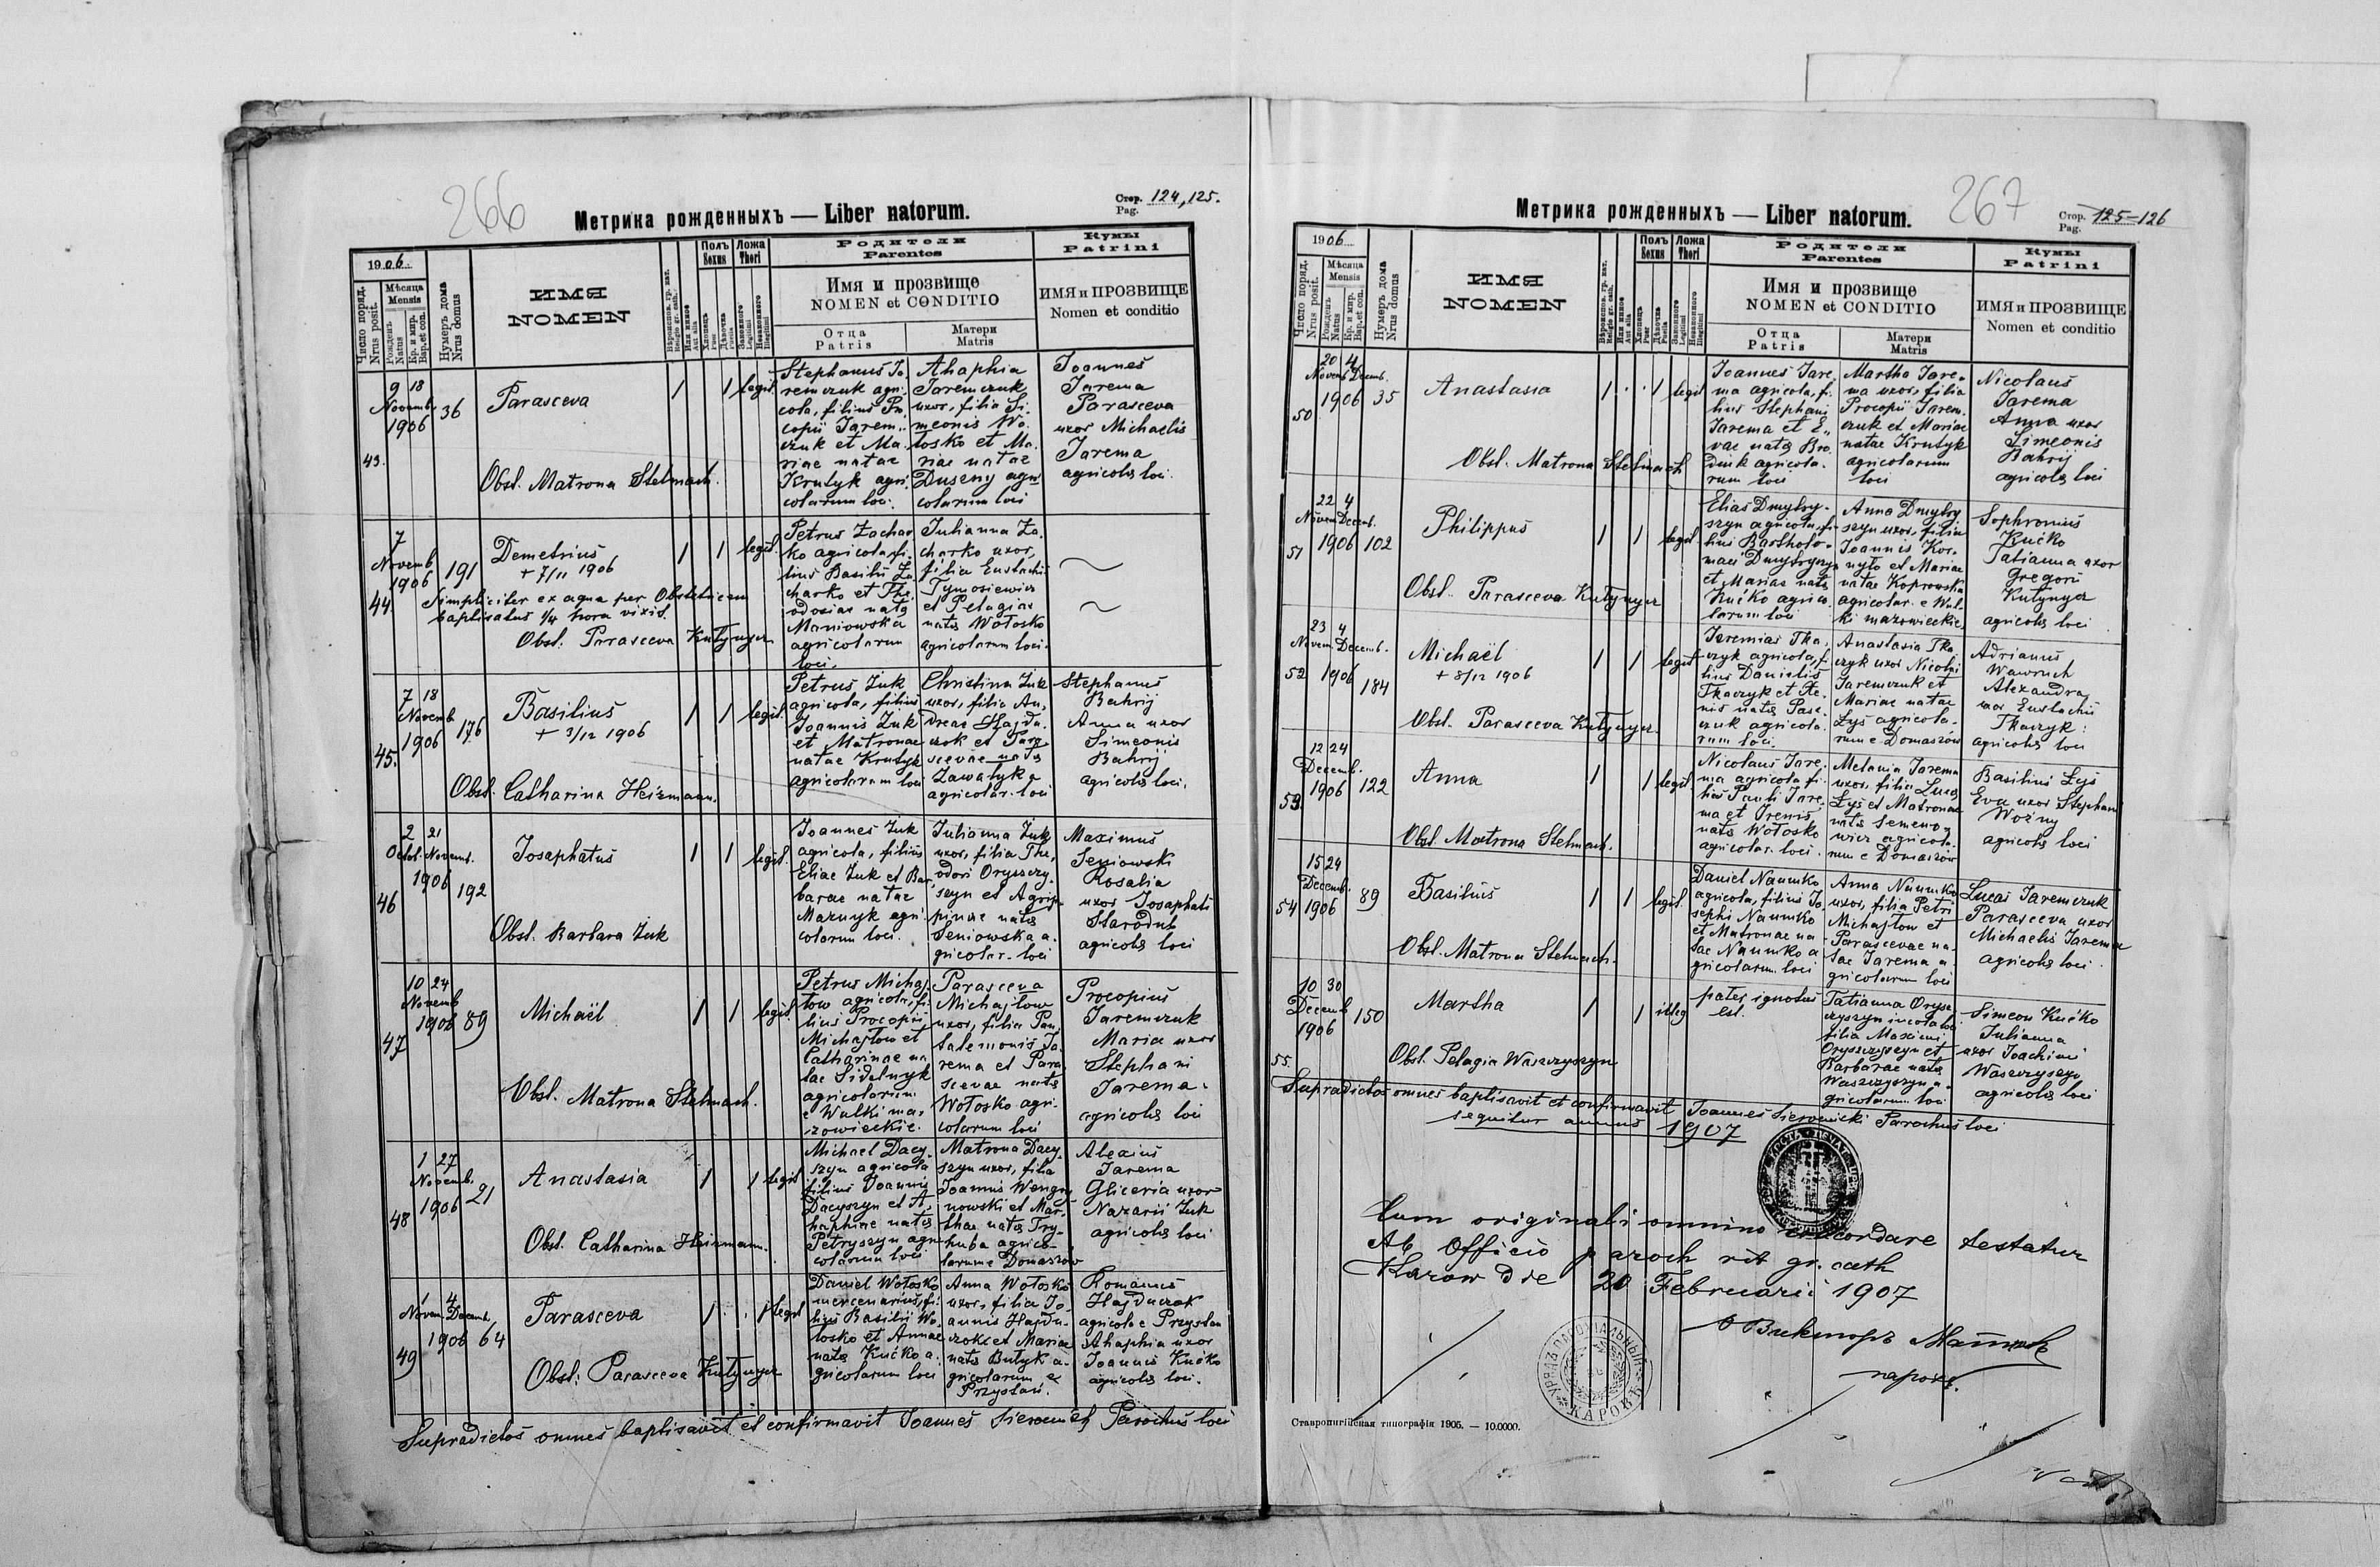 266
Метрика рожденныхъ — Liber natorum.
Стор. 124, 125.
Pag.
1906
Число поряд.
Nrus posit.
Мѣсяца
Mensis
Рожденъ
Natus
Кр. и мир.
Bap. et con.
Нумеръ дома
Nrus domus
ИМЯ
NOMEN
Вѣроисповѣд. гр. кат.
Religio gr. cath.
Или инное
Aut alia
Полъ
Sexus
Хлопецъ
Puer
Дѣвочка
Puella
Ложа
Thori
Законного
Legitimi
Незаконного
Illegitimi
Родители
Parentes
Имя и прозвище
NOMEN et CONDITIO
Отца
Patris
Матери
Matris
Кумы
Patrini
ИМЯ и ПРОЗВИЩЕ
Nomen et conditio
43.
9 18
Novemb.
1906
36
Parasceva
1 1 legit.
Obst. Matrona Stelmach.
Stephanus Ja-
remczuk agri-
cola, filius Pro-
copii Jarem-
czuk et Ma-
riae natae
Krutyk agri-
colarum loci.
Ahaphia
Jaremczuk
uxor, filia Si-
meonis Wo-
łosko et Ma-
riae natae
Duszny agri
colarum loci
Joannes
Jarema
Parasceva
uxor Michaelis
Jarema
agricolae loci.
44
7
Novemb
1906
191
Demetrius
+ 7/11 1906
Simpliciter ex aqua per Obstetricem
baptisatus 1/4 hora vixit.
Obst. Parasceva Kutynyer
1 1 legit.
Petrus Zachar-
ko agricola, fi-
lius Basilii Za-
charko et The-
odosiae natae
Maniowska
agricolarum
loci.
Julianna Za-
charko uxor,
filia Eustachii
Tymosiewicz
et Pelagiae
natae Wołosko
agricolarum loci.
45.
7 18
Novemb
1906
176
Basilius
+ 3/12 1906
Obst. Catharina Heizmann.
1 1 legit.
Petrus Żuk
agricola, filius
Joannis Żuk
et Matronae
natae Krutyk
agricolarum loci
Christina Żuk
uxor, filia An-
dreae Hajdu-
czok et Para-
scevae natae
Zawałyka
agricolar. loci
Stephanus
Bahrij
Anna uxor
Simeonis
Bahrij
agricolae loci.
46
2 21
Octob. Novemb.
1906
192
Josaphatus
Obst. Barbara Żuk
1 1 legit.
Joannes Żuk
agricola, filius
Eliae Żuk et Bar-
barae natae
Mazuryk agri-
colarum loci.
Julianna Żuk
uxor, filia The-
odori Oryszczy-
szyn et Agrip-
pinae natae
Seniowska a-
gricolar. loci
Maximus
Seniowski
Rosalia
uxor Josaphati
Starodub
agricolae loci
47
10 24
Novemb
1906
89
Michaël
Obst. Matrona Stelmach.
1 1 legit.
Petrus Michaj-
łow agricola, fi-
lius Procopii
Michajłow et
Catharinae na-
tae Sidelnyk
agricolarum
e Wulki ma-
zowieckie.
Parasceva
Michajłow
uxor, filia Pan-
talemonis Ja-
rema et Para-
scevae natae
Wołosko agri-
colarum loci
Procopius
Jaremczuk
Maria uxor
Stephani
Jarema
agricolae loci
48
1 27
Novemb.
1906
21
Anastasia
Obst. Catharina Heizmann.
1 1 legit
Michael Dacy-
szyn agricola
filius Joannis
Dacyszyn et A-
haphiae natae
Petryszyn agri
colarum loci
Matrona Dacy-
szyn uxor, filia
Joannis Wengry-
nowski et Mar-
thae natae Try-
huba agrico-
larum e Domaszów
Alexius
Jarema
Gliceria uxor
Nazarii Żuk
agricolae loci
49
1 4
Novem. Decemb.
1906
64
Parasceva
Obst: Parasceva Kutynyer
1 1 legit
Daniel Wołosko
mercenarius, fi-
lius Basilii Wo-
łosko et Annae
natae Kućko a-
gricolarum loci
Anna Wołosko
uxor, filia Jo-
annis Hajdu-
czok et Mariae
natae Butyk a-
gricolarum e
Przystań.
Romanus
Hajduczok
agricola e Przystań
Ahaphia uxor
Joannis Kućko
agricolae loci.
Supradictos omnes baptisavit et confirmavit Joannes Sieroenicki Parochus loci
267
Метрика рожденныхъ — Liber natorum.
Стор. 125-126
Pag.
1906
Число поряд.
Nrus posit.
Мѣсяца
Mensis
Рожденъ
Natus
Кр. и мир.
Bap. et con.
Нумеръ дома
Nrus domus
ИМЯ
NOMEN
Вѣроисповѣд. гр. кат.
Religio gr. cath.
Или инное
Aut alia
Полъ
Sexus
Хлопецъ
Puer
Дѣвочка
Puella
Ложа
Thori
Законного
Legitimi
Незаконного
Illegitimi
Родители
Parentes
Имя и прозвище
NOMEN et CONDITIO
Отца
Patris
Матери
Matris
Кумы
Patrini
ИМЯ и ПРОЗВИЩЕ
Nomen et conditio
50
20 4
Novemb Decemb.
1906
35
Anastasia
Obst. Matrona Stelmach
1 1 legit
Joannes Jare-
ma agricola, fi-
lius Stephani
Jarema et E-
vae natae Bro-
dziuk agricola-
rum loci
Martha Jare-
ma uxor, filia
Procopii Jarem-
czuk et Mariae
natae Krutyk
agricolarum
loci
Nicolaus
Jarema
Anna uxor
Simeonis
Bahrij
agricolae loci
51
22 4
Novem Decemb.
1906
102
Philippus
Obst. Parasceva Kutynyer
1 1 legit
Elias Dmytry-
szyn agricola, fi-
lius Bartholo-
maei Dmytryszyn
et Mariae natae
Kućko agrico-
larum loci
Anna Dmytry
szyn uxor, filia
Joannis Kor-
nyło et Mariae
natae Koprowska
agricolar. e Wul-
ki mazowieckie,
Sophronius
Kućko
Tatianna uxor
Gregorii
Kutynyer
agricolae loci
52
23 4
Novem. Decemb.
1906
184
Michaël
+ 8/12 1906
Obst. Parasceva Kutynyer.
1 1 legit
Jeremias Tka-
czyk agricola, f-
lius Danielis
Tkaczyk et Xe-
niae natae Pase-
czuk agricola-
rum loci.
Anastasia Tka
czyk uxor Nicolai
Jaremczuk et
Mariae natae
Łyś agricola-
rum e Domaszów
Adrianus
Wawruch
Alexandra
uxor Eustachii
Tkaczyk:
agricolae loci
53
12 24
Decemb.
1906
122
Anna
Obst. Matrona Stelmach.
1 1 legit.
Nicolaus Jare-
ma agricola fi-
lius Pauli Jare-
ma et Irenis
natae Wołosko
agricolar. loci.
Melania Jarema
uxor, filia Lucae
Łyś et Matronae
natae Semeno-
wicz agricola-
rum e Domaszów
Basilius Łyś
Eva uxor Stephani
Woźny
agricolae loci
54
15 24
Decemb.
1906
89
Basilius
Obst. Matrona Stelmach.
1 1 legit.
Daniel Naumko
agricola, filius Jo-
sephi Naumko
et Matronae na-
tae Naumko a-
gricolarum loci
Anna Naumko
uxor, filia Petri
Michajłow et
Parascevae na-
tae Jarema a-
gricolarum loci
Lucas Jaremczuk
Parasceva uxor
Michaelis Jarema
agricolae loci.
55.
10 30
Decemb
1906
150
Martha
Obst. Pelagia Waszczyszyn
1 1 illeg
pater ignotus
est.
Tatianna Orysz-
czyszyn incola loci
filia Maximi
Oryszczyszyn et
Barbarae natae
Waszczyszyn a-
gricolarum loci
Simeon Kućko
Julianna
uxor Joachimi
Waszczyszyn
agricolae loci
Supradictos omnes baptisavit et confirmavit Joannes Sieroenicki Parochus loci
sequitur annus 1907
Cum originali omnino concordare testatur
Ab Officio paroch rit. gr. cath
Karow die 20 Februarii 1907
о Викторъ
парохъ.
КАРОВЪ
Ставропигійская типографія 1905. — 10.0000.